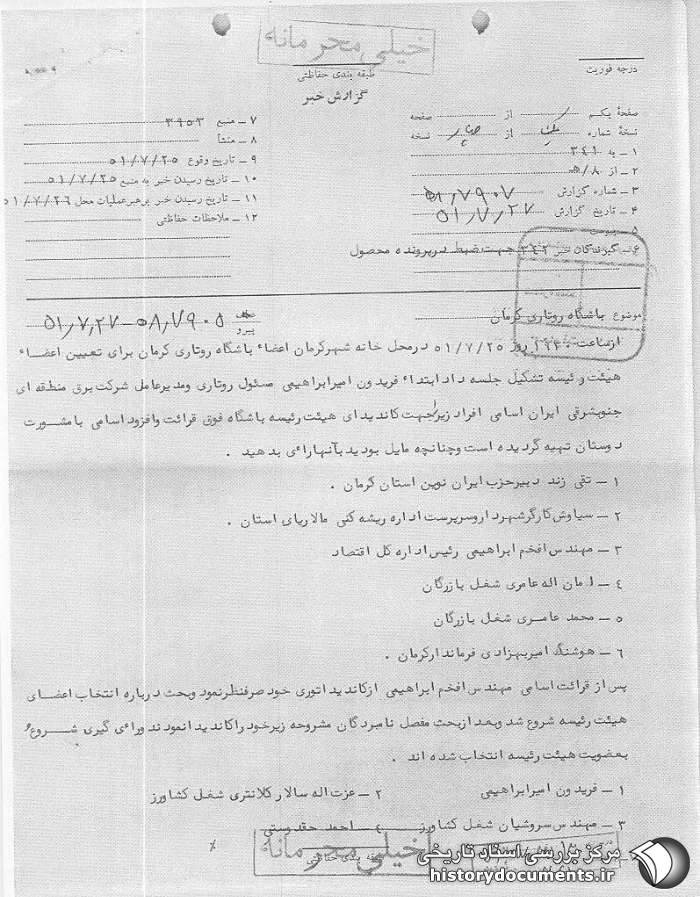 خیلی محرمانه
طبقه بندی حفاظتی
گزارش خبر
درجه فوریت
صفحهٔ یکم از صفحه
نسخهٔ شماره از نسخه
۱ – به ۳۴۱
۲ – از ۸/ه
۳ – شماره گزارش ۵۸٫۷۹۰۷
۴ – تاریخ گزارش ۵۱٫۷٫۲۷
۵ –
۶ – گیرندگان خبر ۳۴۲ جهت ضبط در پرونده محصول
۷ – منبع ۳۹۵۳
۸ – منشأ
۹ – تاریخ وقوع ۵۱/۷/۲۵
۱۰ – تاریخ رسیدن خبر به منبع ۵۱/۷/۲۵
۱۱ – تاریخ رسیدن خبر برهبر عملیات محل ۵۱/۷/۲۶
۱۲ – ملاحظات حفاظتی
موضوع باشگاه روتاری کرمان
پیرو ۵۸٫۷۹۰۵ – ۵۱٫۷٫۲۷
ازساعت روز ۵۱/۷/۲۵ درمحل خانه شهرکرمان اعضاء باشگاه روتاری کرمان برای تعیین اعضاء
هیئت رئیسه تشکیل جلسه داد ابتداء فریدون امیرابراهیمی مسئول روتاری ومدیرعامل شرکت برق منطقه ای
جنوبشرقی ایران اسامی افراد زیرراجهت کاندیدای هیئت رئیسه باشگاه فوق قرائت وافزود اسامی با مشورت
دوستان تهیه گردیده است وچنانچه مایل بودید بآنهارای بدهید .
۱ – تقی زند دبیرحزب ایران نوین استان کرمان .
۲ – سیاوش کارگر شهرداروسرپرست اداره ریشه کنی مالاریای استان .
۳ – مهندس افخم ابراهیمی رئیس اداره کل اقتصاد
۴ – امان اله عامری شغل بازرگان
۵ – محمد عامری شغل بازرگان
۶ – هوشنگ امیربهزادی فرماندارکرمان .
پس از قرائت اسامی مهندس افخم ابراهیمی ازکاندیداتوری خود صرفنظرنمود وبحث درباره انتخاب اعضای
هیئت رئیسه شروع شد وبعد ازبحث مفصل نامبردگان مشروحه زیرخود راکاندیدانمودند ورأی گیری شروع و
بعضویت هیئت رئیسه انتخاب شده اند .
۱ – فریدون امیرابراهیمی ۲ – عزت اله سالارکلانتری شغل کشاورز
۳ – مهندس سروشیان شغل کشاورز ۴ – احمد حقدوستی
خیلی محرمانه
طبقه بندی حفاظتی
مرکز بررسی اسناد تاریخی
historydocuments.ir